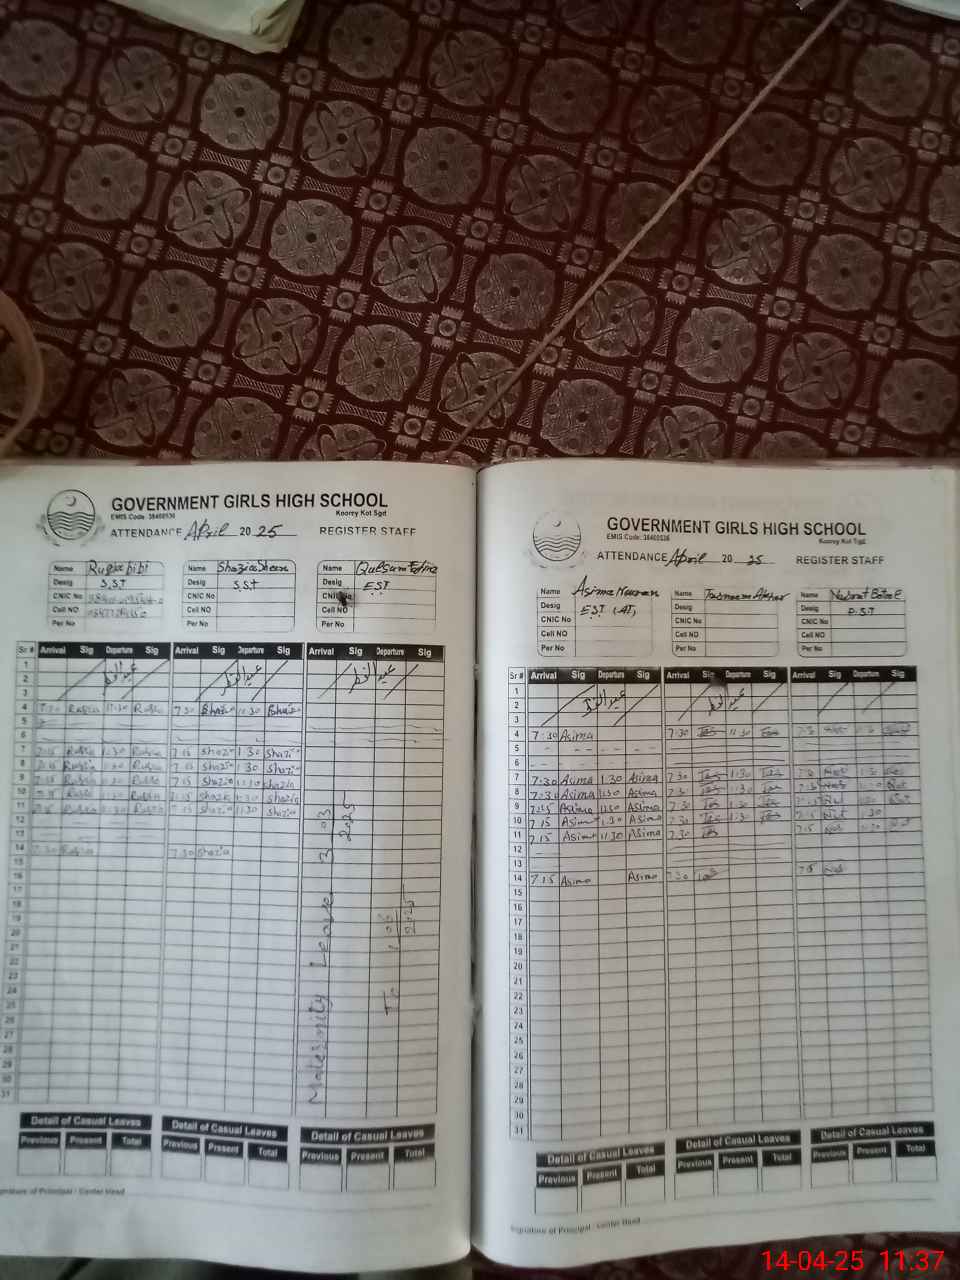 GOVERNMENT GIRLS HIGH SCHOOL
EMIS Code: 38400536 Koorey Kot Sgd
ATTENDANCE April 20 25 REGISTER STAFF
Name Rubia bibi Name Shazia Name Qulsum
Desig S.S.T Desig S.S.T Desig E.S.T
CNIC No CNIC No CNIC No
Cell NO Cell NO Cell NO
Per No Per No Per No
Sr # Arrival Sig Departure Sig Arrival Sig Departure Sig Arrival Sig Departure Sig
1
2 عید الفطر عید الفطر عید الفطر
3
4 7:30 Rubia 11:30 Rubia 7:30 Shazia 11:30 Shazia
5
6
7 7:15 Rubia 1:30 Rubia 7:15 Shazia 1:30 Shazia
8 7:15 Rubia 1:30 Rubia 7:15 Shazia 1:30 Shazia
9 7:15 Rubia 1:30 Rubia 7:15 Shazia 1:30 Shazia
10 7:15 Rubia 1:30 Rubia 7:15 Shazia 1:30 Shazia
11 7:15 Rubia 11:30 Rubia 7:15 Shazia 11:30 Shazia
12
13
14 7:30 Rubia 7:30 Shazia
15
16
17
18
19
20
21
22
23
24
25
26
27
28
29
30
31
Maternity Leave 3 03 2025
To
2025
Detail of Casual Leaves Detail of Casual Leaves Detail of Casual Leaves
Previous Present Total Previous Present Total Previous Present Total
Signature of Principal / Center Head
GOVERNMENT GIRLS HIGH SCHOOL
EMIS Code: 38400536 Koorey Kot
ATTENDANCE April 20 25 REGISTER STAFF
Name Asima Name Name
Desig E.S.T (AT) Desig Desig P.S.T
CNIC No CNIC No CNIC No
Cell NO Cell NO Cell NO
Per No Per No Per No
Sr # Arrival Sig Departure Sig Arrival Sig Departure Sig Arrival Sig Departure Sig
1
2 عید الفطر عید الفطر
3
4 7:30 Asima 7:30 11:30
5
6
7 7:30 Asima 1:30 Asima 7:30 1:30
8 7:30 Asima 1:30 Asima 7:30 1:30
9 7:15 Asima 1:30 Asima 7:30 1:30
10 7:15 Asima 1:30 Asima 7:30 1:30
11 7:15 Asima 11:30 Asima 7:30
12
13
14 7:15 Asima Asima 7:30
15
16
17
18
19
20
21
22
23
24
25
26
27
28
29
30
31
Detail of Casual Leaves Detail of Casual Leaves Detail of Casual Leaves
Previous Present Total Previous Present Total Previous Present Total
Signature of Principal / Center Head
14-04-25 11:37